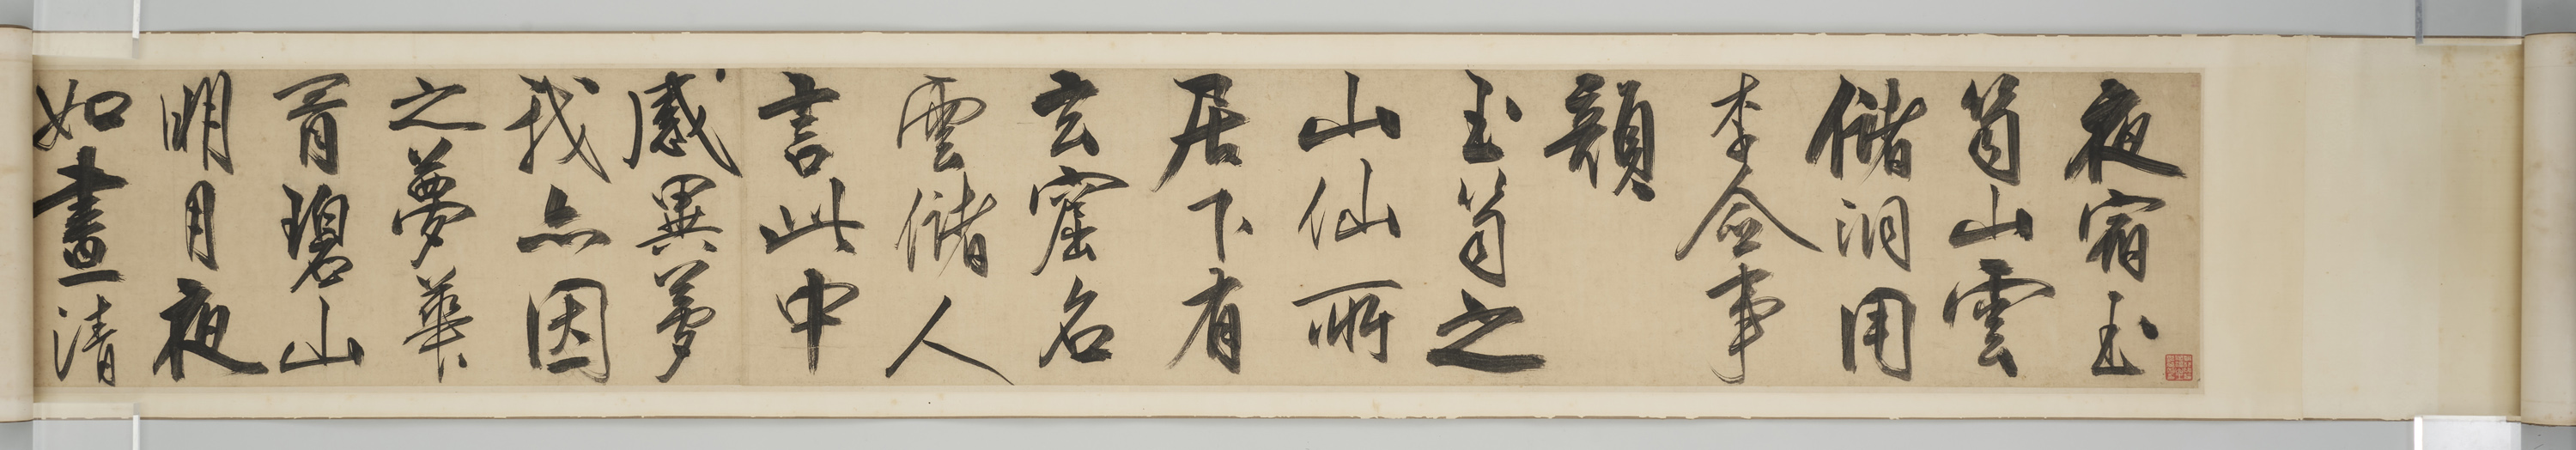 夜宿玉
笥山雲
儲洞用
李僉事
韻
玉笥之
山仙所
居下有
玄窟名
雲儲人
言此中
感異夢
我亦因
之夢華
胥碧山
明月夜
如晝清